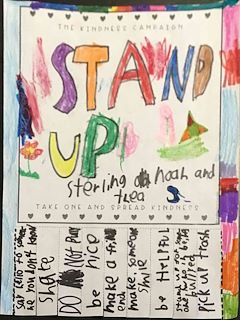 THE KINDNESS CAMPAIGN
STAND
UP!
sterling noah and
thea S.
TAKE ONE AND SPREAD KINDNESS
say hello to some
he you don't know
share
DO Not Push
be nice
make a fri
end
make someone
smile
be HELPFUL
stand up for some
being
bullied
pick up trash